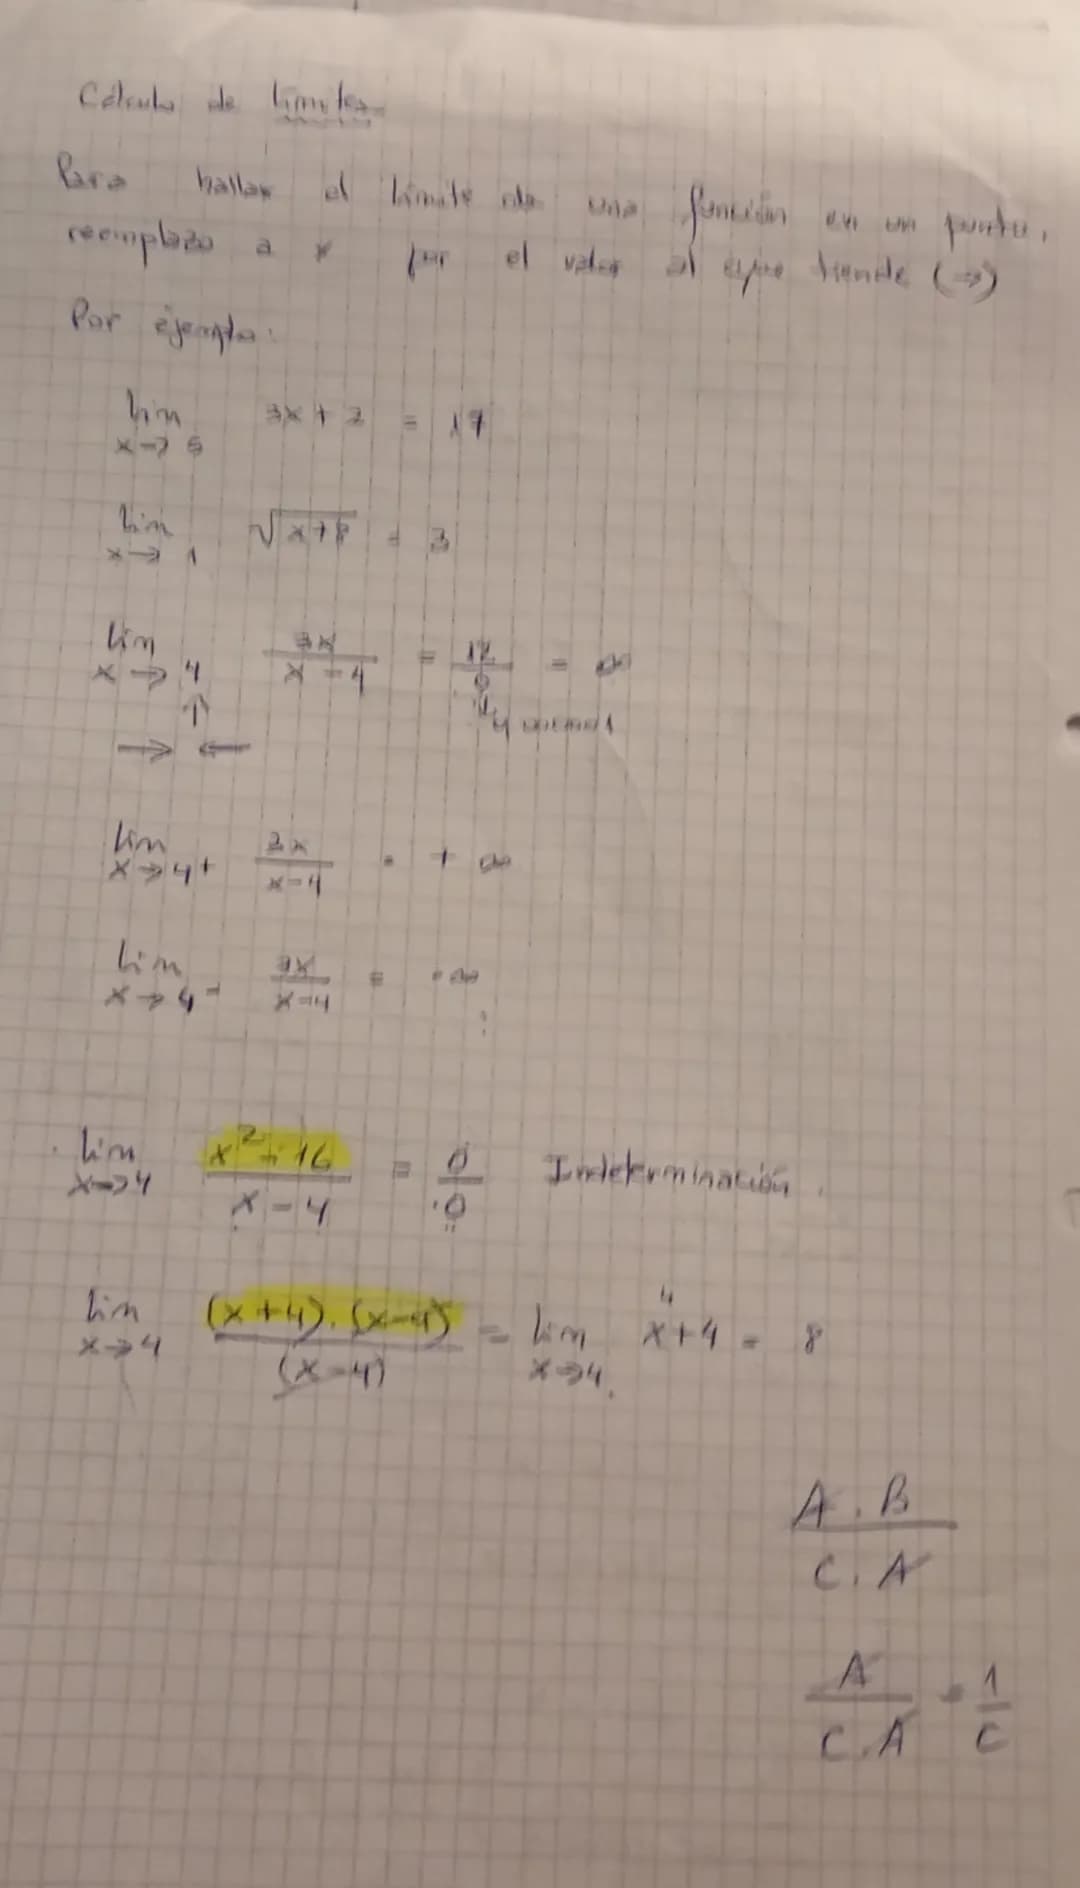 Cálculo de límites
Para hallar el límite de una función en un punto,
reemplazo a x por el valor al que tiende (→)
Por ejemplo:
lim x→5 3x + 2 = 17
lim x→1 √(x+8) = 3
lim x→4 3x/(x-4) = 12/0 = ∞
↑
→ ←
lim x→4+ 3x/(x-4) = + ∞
lim x→4- 3x/(x-4) = -∞
lim x→4 (x² - 16)/(x - 4) = 0/0 Indeterminación.
lim x→4 (x+4).(x-4)/(x-4) = lim x→4 x+4 = 8
A . B / C . A
A / C . A = 1/C